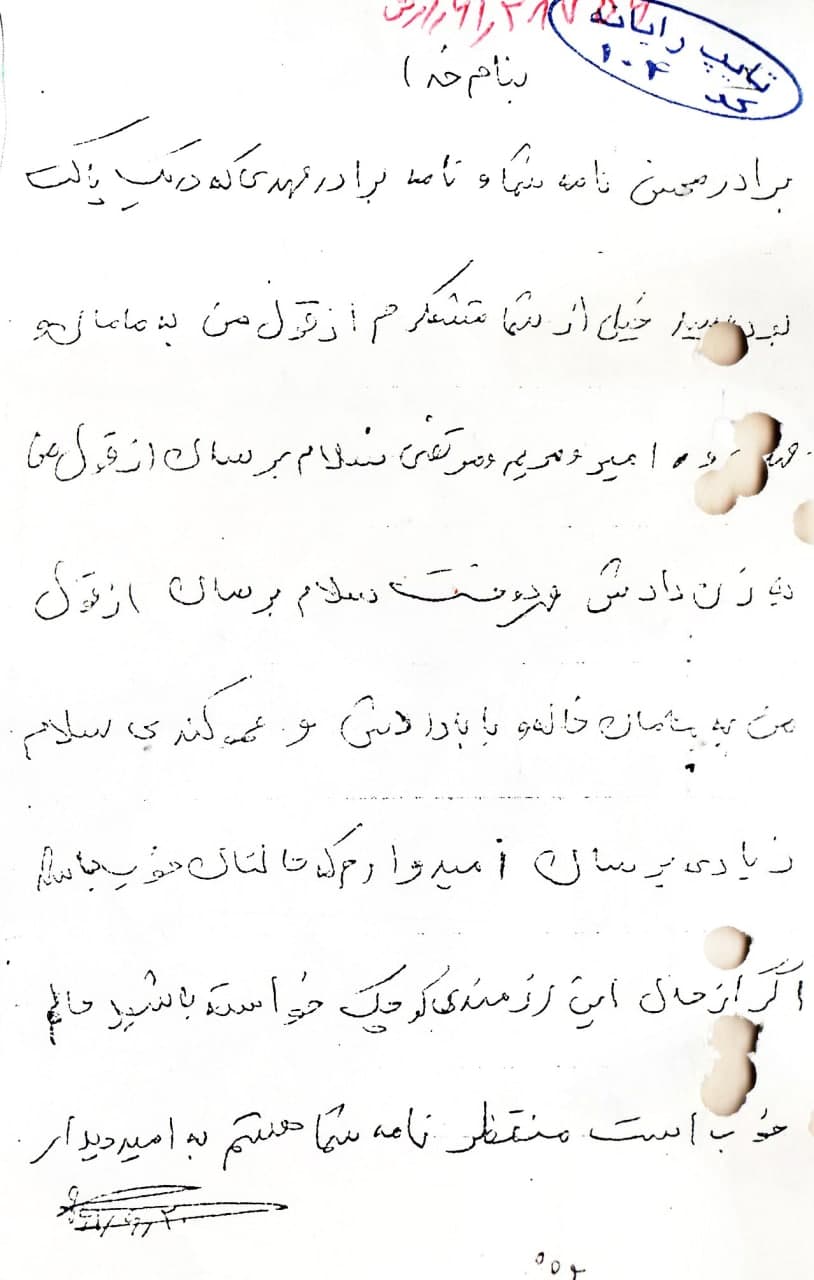 تایپ رایانه
کد ۱۰۴
بنام خدا
برادر محسن نامه شما و نامه برادر مهدی که در یک پاکت
خیلی از شما متشکرم از قول من به مامان و
امیر و مریم و مرتضی سلام برسان از قول من
به زن داداش سلام برسان از قول
من به خاله و بابا و عمو سلام
زیادی برسان امیدوارم که حالتان خوب باشد
اگر از حال این رزمنده‌ی کوچک خواسته باشید حالم
خوب است منتظر نامه شما هستم به امید دیدار